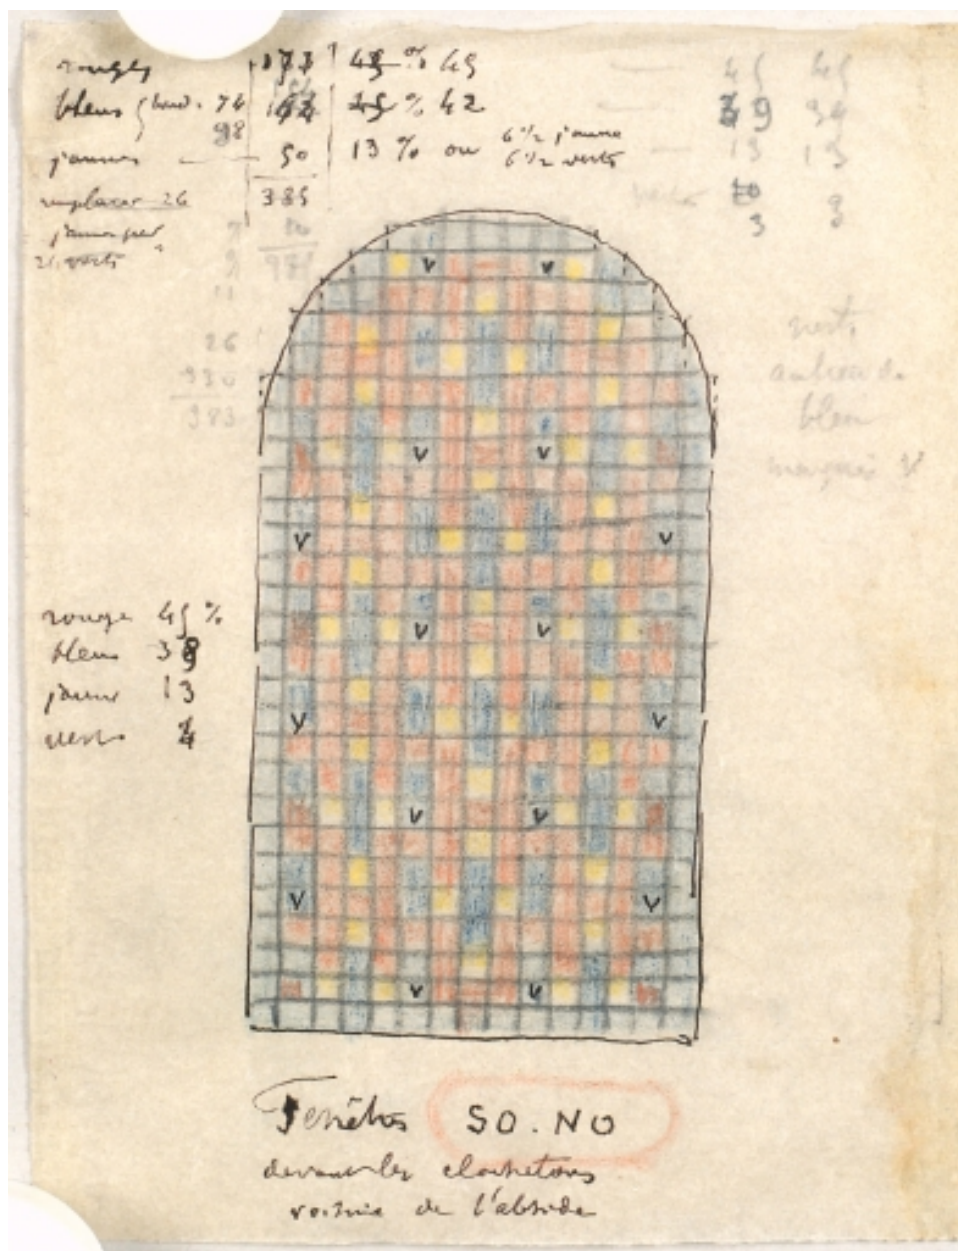 rouges 173 45 % 45
bleus bord. 74 45 % 42
98
jaunes 50 13 % ou 6 1/2 jaune
6 1/2 verts
remplacer 26 385
jaunes par
26 verts
26
930
983
45 45
39 39
13 13
3 3
verts
autour du
bleu
marqués V
rouge 45 %
bleus 39
jaune 13
verts 4
V V
V V
V V
V V
V V
V V
V V
V V
Fenêtres SO.NO
devant les clochetons
voisine de l'abside